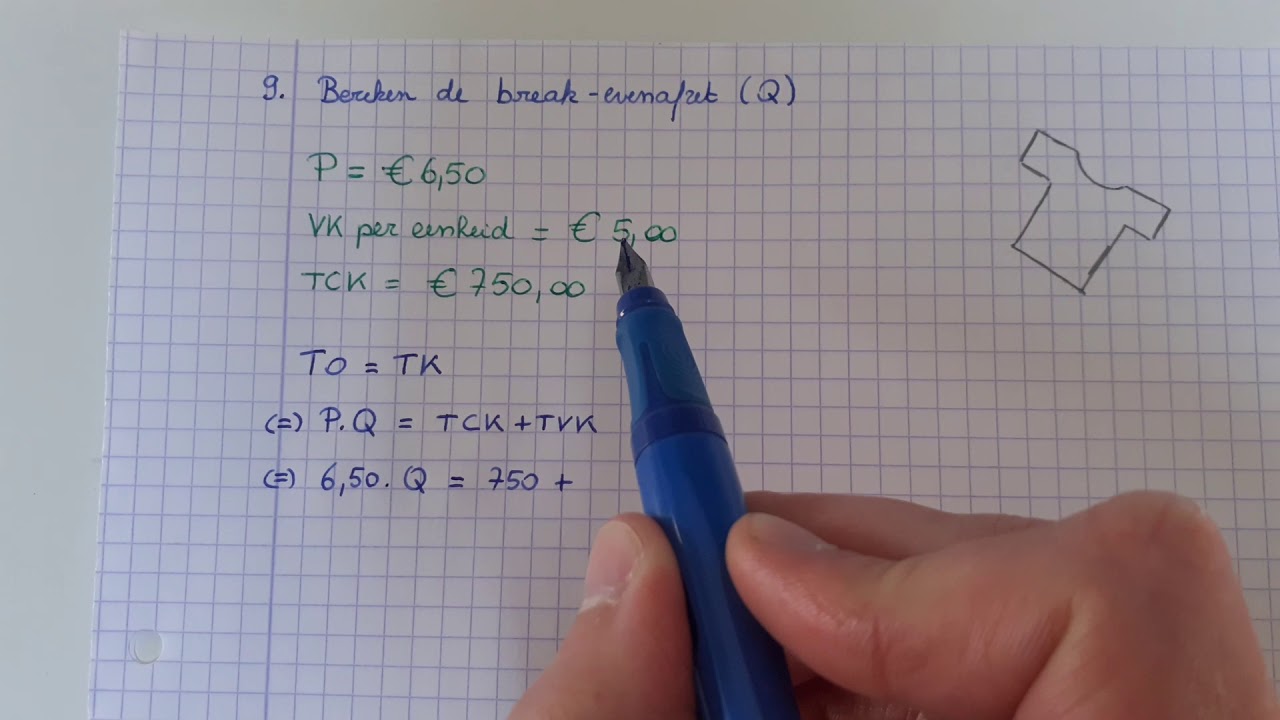 9. Bereken de break-evenafzet (Q)
P = € 6,50
VK per eenheid = € 5,00
TCK = € 750,00
TO = TK
(=) P.Q = TCK + TVK
(=) 6,50. Q = 750 +